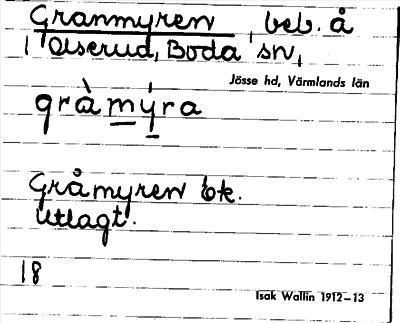 Granmyren, beb. å
i Olserud, Boda sn,
Jösse hd, Värmlands län
gràmýra
Gråmyren ek.
utlagt.
18
Isak Wallin 1912–13